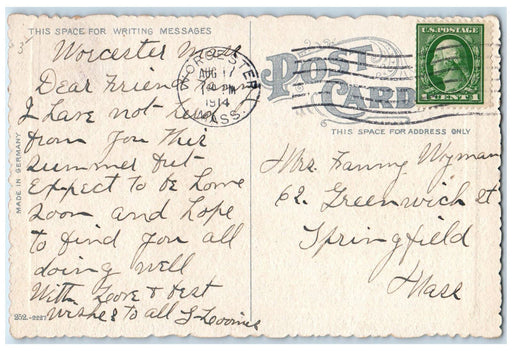 THIS SPACE FOR WRITING MESSAGES
Worcester Mass
Dear Friend
I have not
from you this
summer but
expect to be home
soon and hope
to find you all
doing well
With Love & best
wishes to all
252.-2227
MADE IN GERMANY
WORCESTER
AUG 17
PM
1914
MASS.
POST
CARD
U.S. POSTAGE
1 CENT 1
THIS SPACE FOR ADDRESS ONLY
Mrs. Fanny Wyman
62. Greenwich St
Springfield
Mass